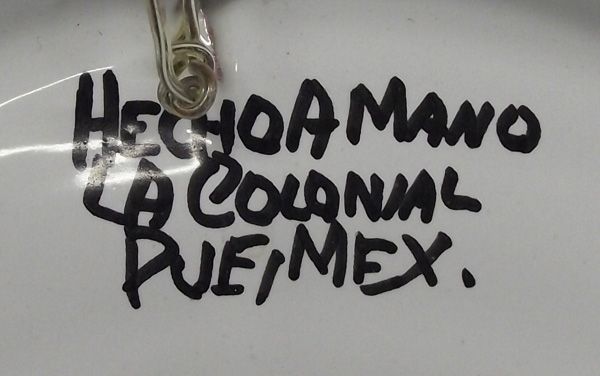 HECHO A MANO
LA COLONIAL
PUE, MEX.